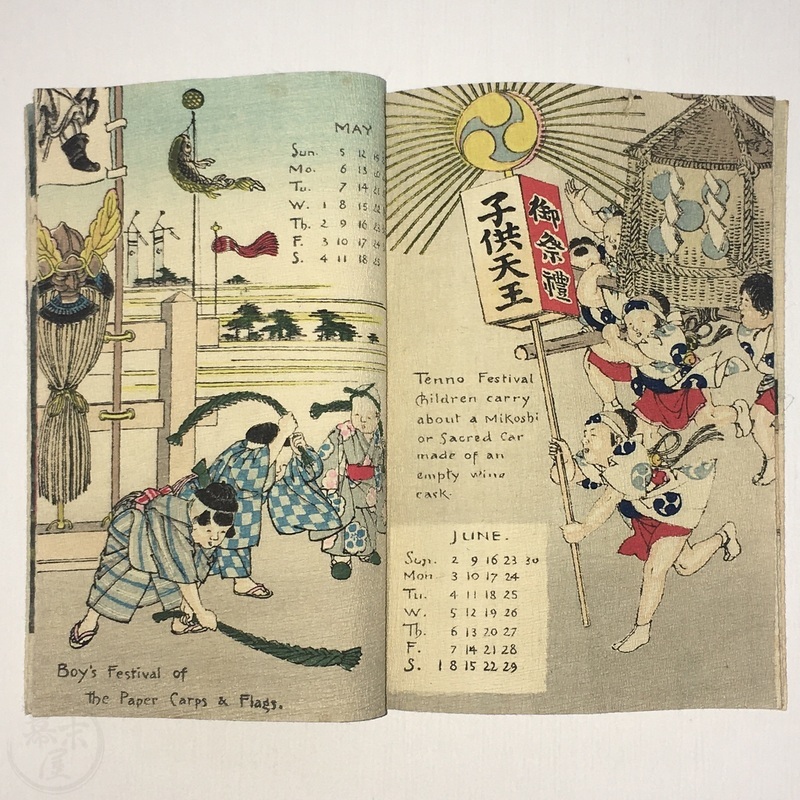 MAY
Sun. 5 12 19
Mo. 6 13
Tu. 7 14 21
W. 1 8 15 22
Th. 2 9 16 23
F. 3 10 17 24
S. 4 11 18 25
Boy's Festival of
the Paper Carps & Flags.
御祭禮
子供天王
Tenno Festival
Children carry
about a Mikoshi
or Sacred Car
made of an
empty wine
cask.
JUNE.
Sun. 2 9 16 23 30
Mon 3 10 17 24
Tu. 4 11 18 25
W. 5 12 19 26
Th. 6 13 20 27
F. 7 14 21 28
S. 1 8 15 22 29